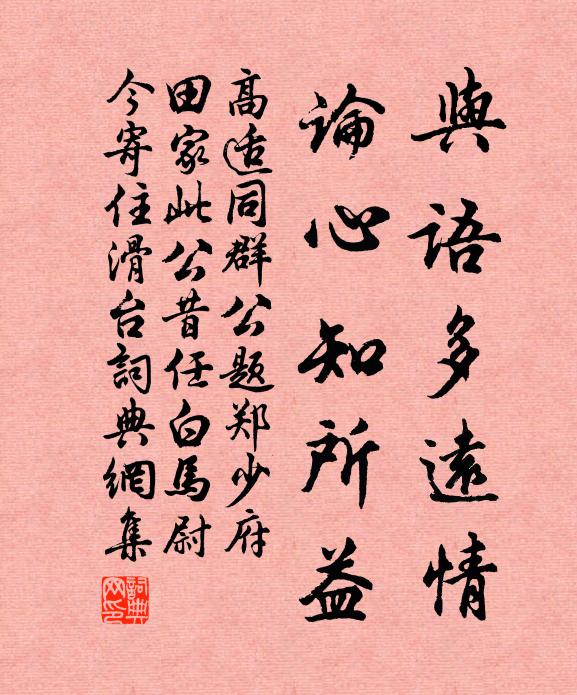 與語多遠情
論心知所益
高适同群公题郑少府
田家此公昔任白馬尉
今寄住滑台詞典網集
詞典
网印